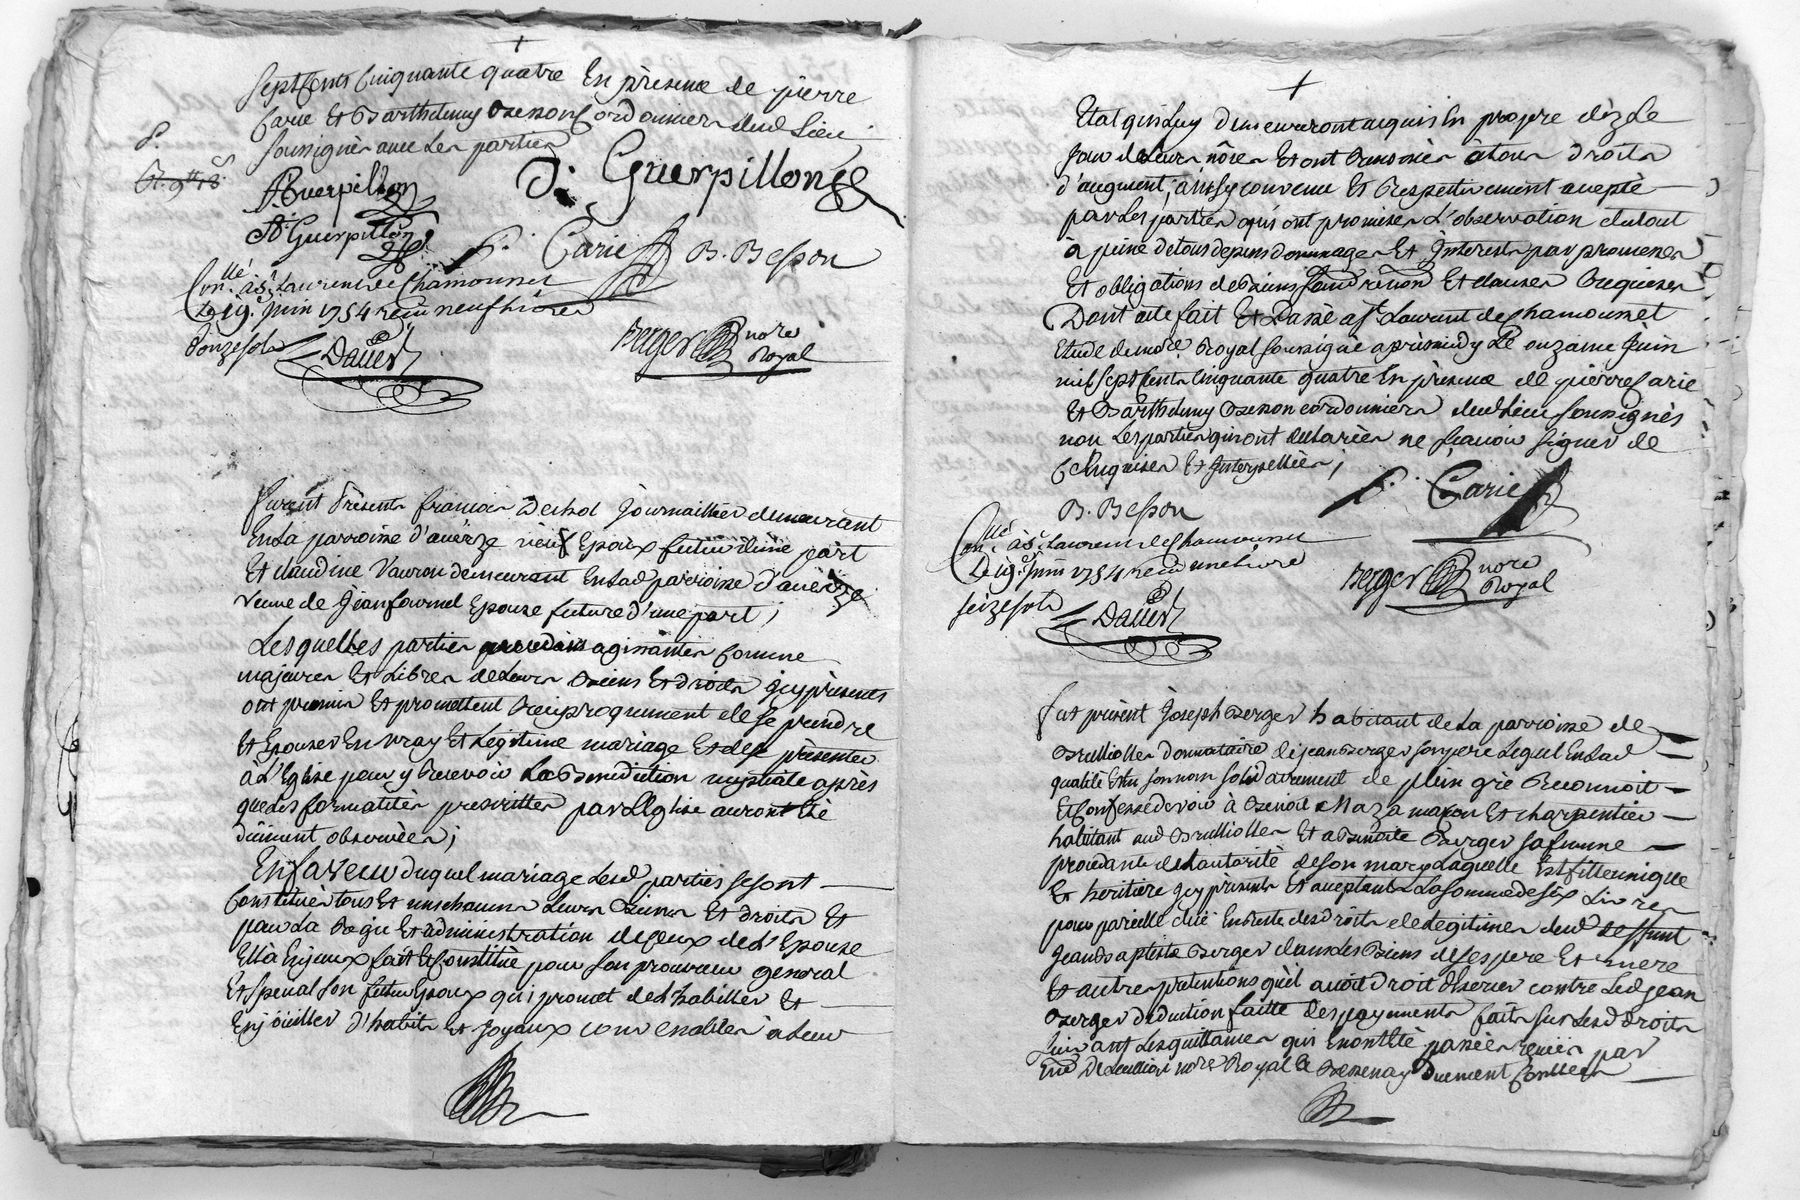 +
Sept Cents Cinquante quatre En présence de pierre
Carie Et Barthelemy Besson Cordonniers dud Lieu
soussignés avec Les parties
P.
A Guerpillon
J. Guerpillon
St Guerpillon
P. Carie B. Besson
Con.llé à St Laurent de Chamousset
Le 19.e Juin 1754 reçu neuf livres
douze sols
Dauer
Berger nore
Royal
Furent Présents francois Dechol Journaillier demeurant
En La parroisse d'aveize Epoux futur d'une part
Et claudine Vauron demeurant En Lad parroisse d'aveize
veuve de Jean fournel Epouse future d'une part ;
Lesquelles parties agissantes comme
majeures Et Libres de Leurs Biens Et droits icy présents
ont promis Et promettent Reciproquement de se prendre
Et Epouser En vray Et Legitime mariage Et de se présenter
à L'Eglise pour y Recevoir La Benediction nuptiale après
que les formalités prescrittes par L'Eglise auront Eté
düement observées ;
En faveur duquel mariage Lesd parties se sont
Constitués tous Et uns chacuns Leurs Biens Et droits Et
pour La Regie Et administration de ceux de L'Epouse
Elle à Enjeux fait Et Constitué pour son procureur general
Et special son futur Epoux qui promet de L'habiller Et
Enjoüeller d'habits Et Joyaux convenables à Leur
+
Etat qui Luy demeureront acquis En propre dèz Le
Jour de Leurs nôces Et ont Renoncés à tous droits
d'augment, ainsy convenu Et Respectivement accepté
par Les parties qui ont promises L'observation du tout
à peine de tous depens dommages Et Interests par promesses
Et obligations de Biens Et clauses Requises
Dont acte fait Et Passé à St Laurent de Chamousset
Etude de nore Royal soussigné après midy Le onzieme Juin
mil Sept Cents Cinquante quatre En présence de pierre Carie
Et Barthelemy Besson cordonniers dud Lieu soussignés
non Les parties qui ont declarées ne sçavoir signer de
Enquises Et Interpellées ;
P. Carie
B. Besson
Con.llé à St Laurent de Chamousset
Le 19.e Juin 1754 reçu une livre
seize sols
Dauer
Berger nore
Royal
Fut présent Joseph Berger habitant de La parroisse de
Brullioles donnataire de jean Berger son pere Lequel En Lad
qualité Et En son nom solidairement de plein gré Reconnoit
Et Confesse devoir à Benoit Maza maçon Et charpentier
habitant aud Brullioles Et a Benoite Berger sa femme
procedante de L'autorité de son mary Laquelle Est fille unique
Et heritiere icy présents Et acceptants La somme de six Livres
pour pareille due En reste des droits de Legitime dud deffunt
Jean Baptiste Berger dans Les Biens de ses pere Et mere
Et autres pretentions qu'il avoit droit d'exercer contre Led jean
Berger deduction faitte des payements faits sur Lesd droits
suivant Les quittances qui En ont Eté passées reçues par
Me nore Royal à Bessenay duement Conllées